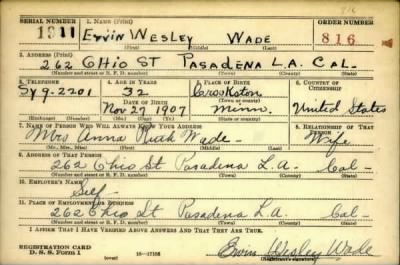 816
SERIAL NUMBER 1. NAME (Print) ORDER NUMBER
1911 Ervin Wesley Wade 816
(First) (Middle) (Last)
2. ADDRESS (Print)
262 Ohio St Pasadena L.A. Cal-
(Number and street or R. F. D. number) (Town) (County) (State)
3. TELEPHONE 4. AGE IN YEARS 5. PLACE OF BIRTH 6. COUNTRY OF CITIZENSHIP
Sy 9-2201 32 Crookston
DATE OF BIRTH (Town or county)
Nov 27 1907 Minn. United States
(Exchange) (Number) (Mo.) (Day) (Yr.) (State or country)
7. NAME OF PERSON WHO WILL ALWAYS KNOW YOUR ADDRESS 8. RELATIONSHIP OF THAT PERSON
Mrs Anna Ruth Wade Wife
(Mr., Mrs., Miss) (First) (Middle) (Last)
9. ADDRESS OF THAT PERSON
262 Ohio St Pasadena L.A. Cal-
(Number and street or R. F. D. number) (Town) (County) (State)
10. EMPLOYER'S NAME
Self
11. PLACE OF EMPLOYMENT OR BUSINESS
262 Ohio St Pasadena L.A. Cal-
(Number and street or R. F. D. number) (Town) (County) (State)
I AFFIRM THAT I HAVE VERIFIED ABOVE ANSWERS AND THAT THEY ARE TRUE.
REGISTRATION CARD
D. S. S. Form 1 16-17105 Ervin Wesley Wade